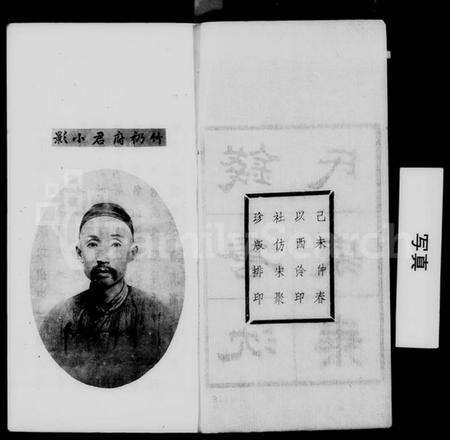 己未仲春
以西泠印
社仿宋聚
珍版排印
竹礽府君小影
写真